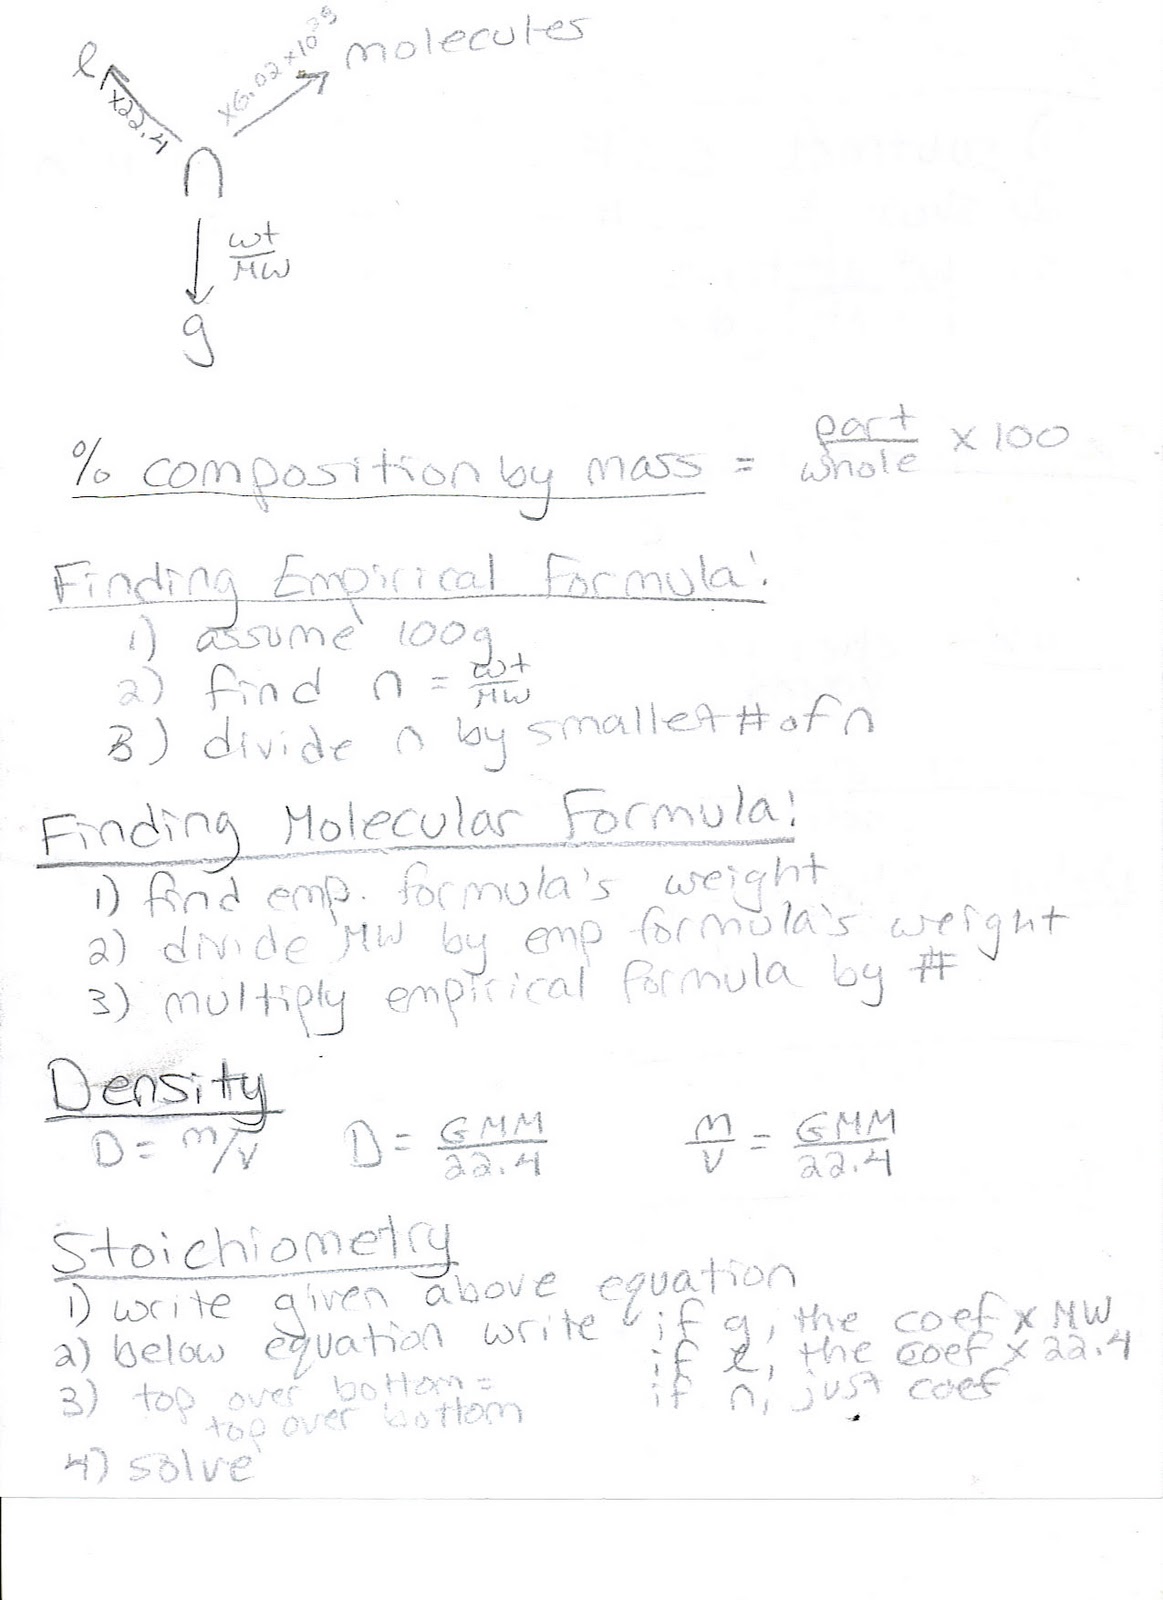 l
x22.4
x6.02x10²³
molecules
n
wt/MW
g
% composition by mass = part/whole x 100
Finding Empirical Formula:
1) assume 100g
2) find n = wt/MW
3) divide n by smallest # of n
Finding Molecular Formula:
1) find emp. formula's weight
2) divide MW by emp formula's weight
3) multiply empirical formula by #
Density
D = m/v D = GMM/22.4 m/v = GMM/22.4
Stoichiometry
1) write given above equation
2) below equation write if g, the coef x MW
if l, the coef x 22.4
if n, just coef
3) top over bottom =
top over bottom
4) solve